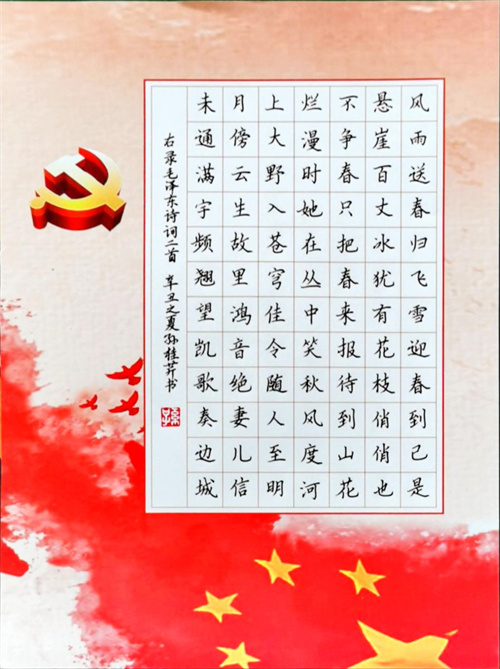 风雨送春归飞雪迎春到已是
悬崖百丈冰犹有花枝俏俏也
不争春只把春来报待到山花
烂漫时她在丛中笑秋风度河
上大野入苍穹佳令随人至明
月傍云生故里鸿音绝妻儿信
未通满宇频翘望凯歌奏边城
右录毛泽东诗词二首 辛丑之夏孙桂芹书